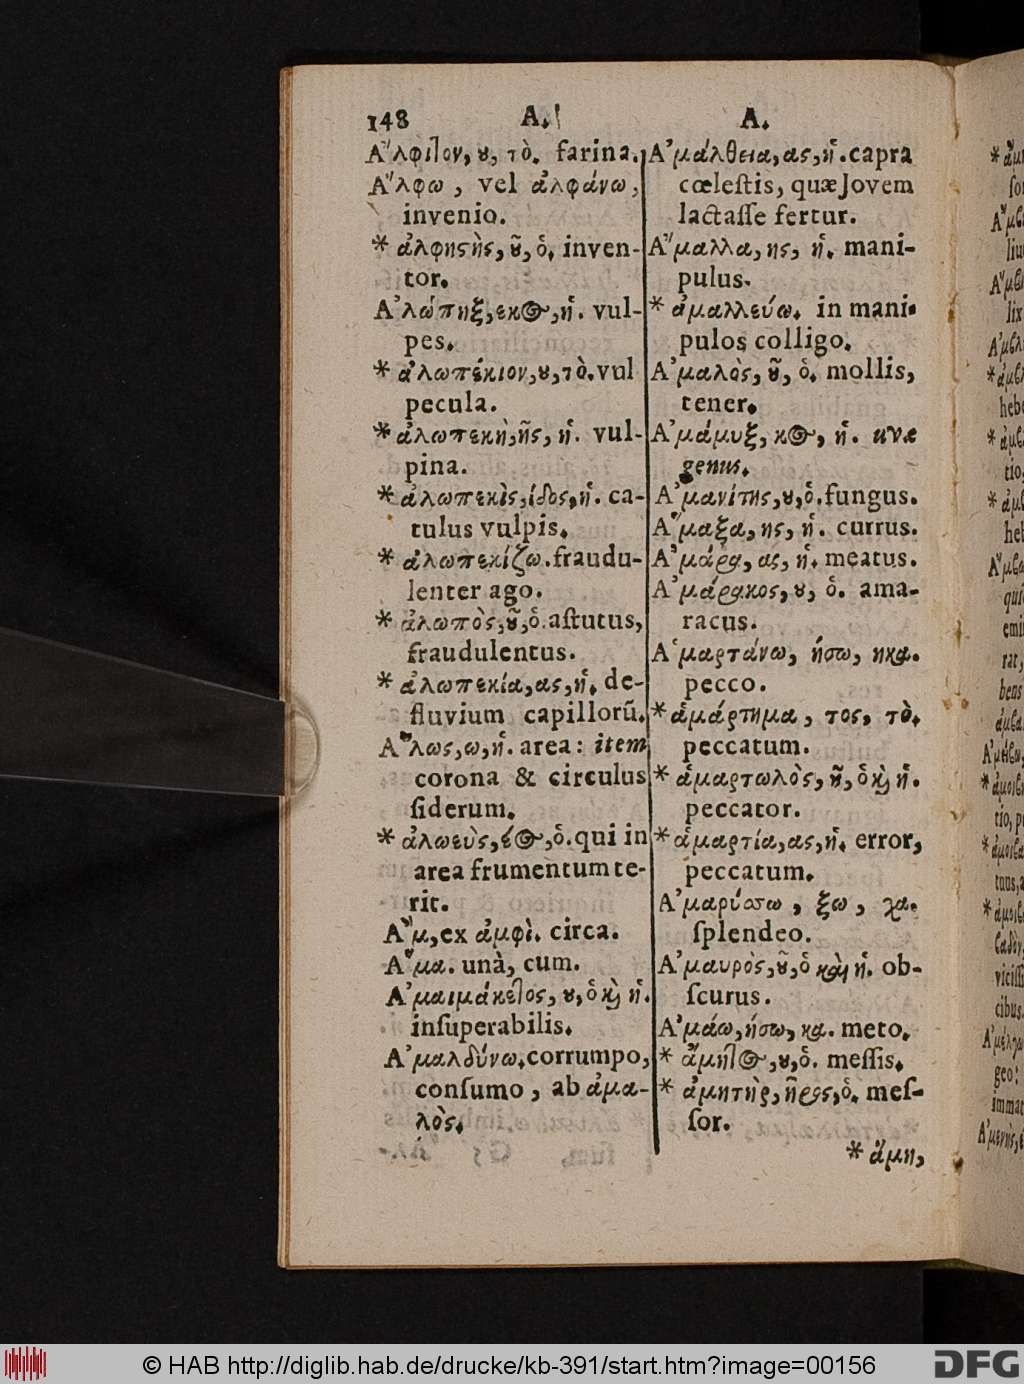 148 A. A.
Ἄλφιτον, ου, τὸ. farina.
Ἄλφω, vel ἀλφάνω,
invenio.
* ἀλφηστὴς, οῦ, ὁ. inven-
tor.
Ἀλώπηξ, εκος, ἡ. vul-
pes.
* ἀλωπέκιον, ου, τὸ. vul
pecula.
* ἀλωπεκὴ, ῆς, ἡ. vul-
pina.
* ἀλωπεκὶς, ίδος, ἡ. ca-
tulus vulpis.
* ἀλωπεκίζω. fraudu-
lenter ago.
* ἀλωπὸς, οῦ, ὁ. aſtutus,
fraudulentus.
* ἀλωπεκία, ας, ἡ. de-
fluvium capillorū.
Ἅλως, ω, ἡ. area: item
corona & circulus
ſiderum.
* ἁλωεὺς, έος, ὁ. qui in
area frumentum te-
rit.
Ἂμ, ex ἀμφὶ. circa.
Ἅμα. unà, cum.
Ἀμαιμάκετος, ου, ὁ καὶ ἡ.
inſuperabilis.
Ἀμαλδύνω. corrumpo,
conſumo, ab ἀμα-
λὸς.
Ἀμάλθεια, ας, ἡ. capra
cœleſtis, quæ Jovem
lactaſſe fertur.
Ἄμαλλα, ης, ἡ. mani-
pulus.
* ἀμαλλεύω. in mani-
pulos colligo.
Ἀμαλὸς, οῦ, ὁ. mollis,
tener.
Ἀμάμυξ, κος, ἡ. uvæ
genus.
Ἀμανίτης, ου, ὁ. fungus.
Ἅμαξα, ης, ἡ. currus.
Ἀμάρα, ας, ἡ. meatus.
Ἀμάρακος, ου, ὁ. ama-
racus.
Ἁμαρτάνω, ήσω, ηκα.
pecco.
* ἁμάρτημα, τος, τὸ.
peccatum.
* ἁμαρτωλὸς, οῦ, ὁ καὶ ἡ.
peccator.
* ἁμαρτία, ας, ἡ. error,
peccatum.
Ἀμαρύσσω, ξω, χα.
ſplendeo.
Ἀμαυρὸς, οῦ, ὁ καὶ ἡ. ob-
ſcurus.
Ἀμάω, ήσω, κα. meto.
* ἄμητος, ου, ὁ. meſſis.
* ἀμητὴρ, ῆρος, ὁ. meſ-
ſor.
* ἄμη,
© HAB http://diglib.hab.de/drucke/kb-391/start.htm?image=00156
DFG